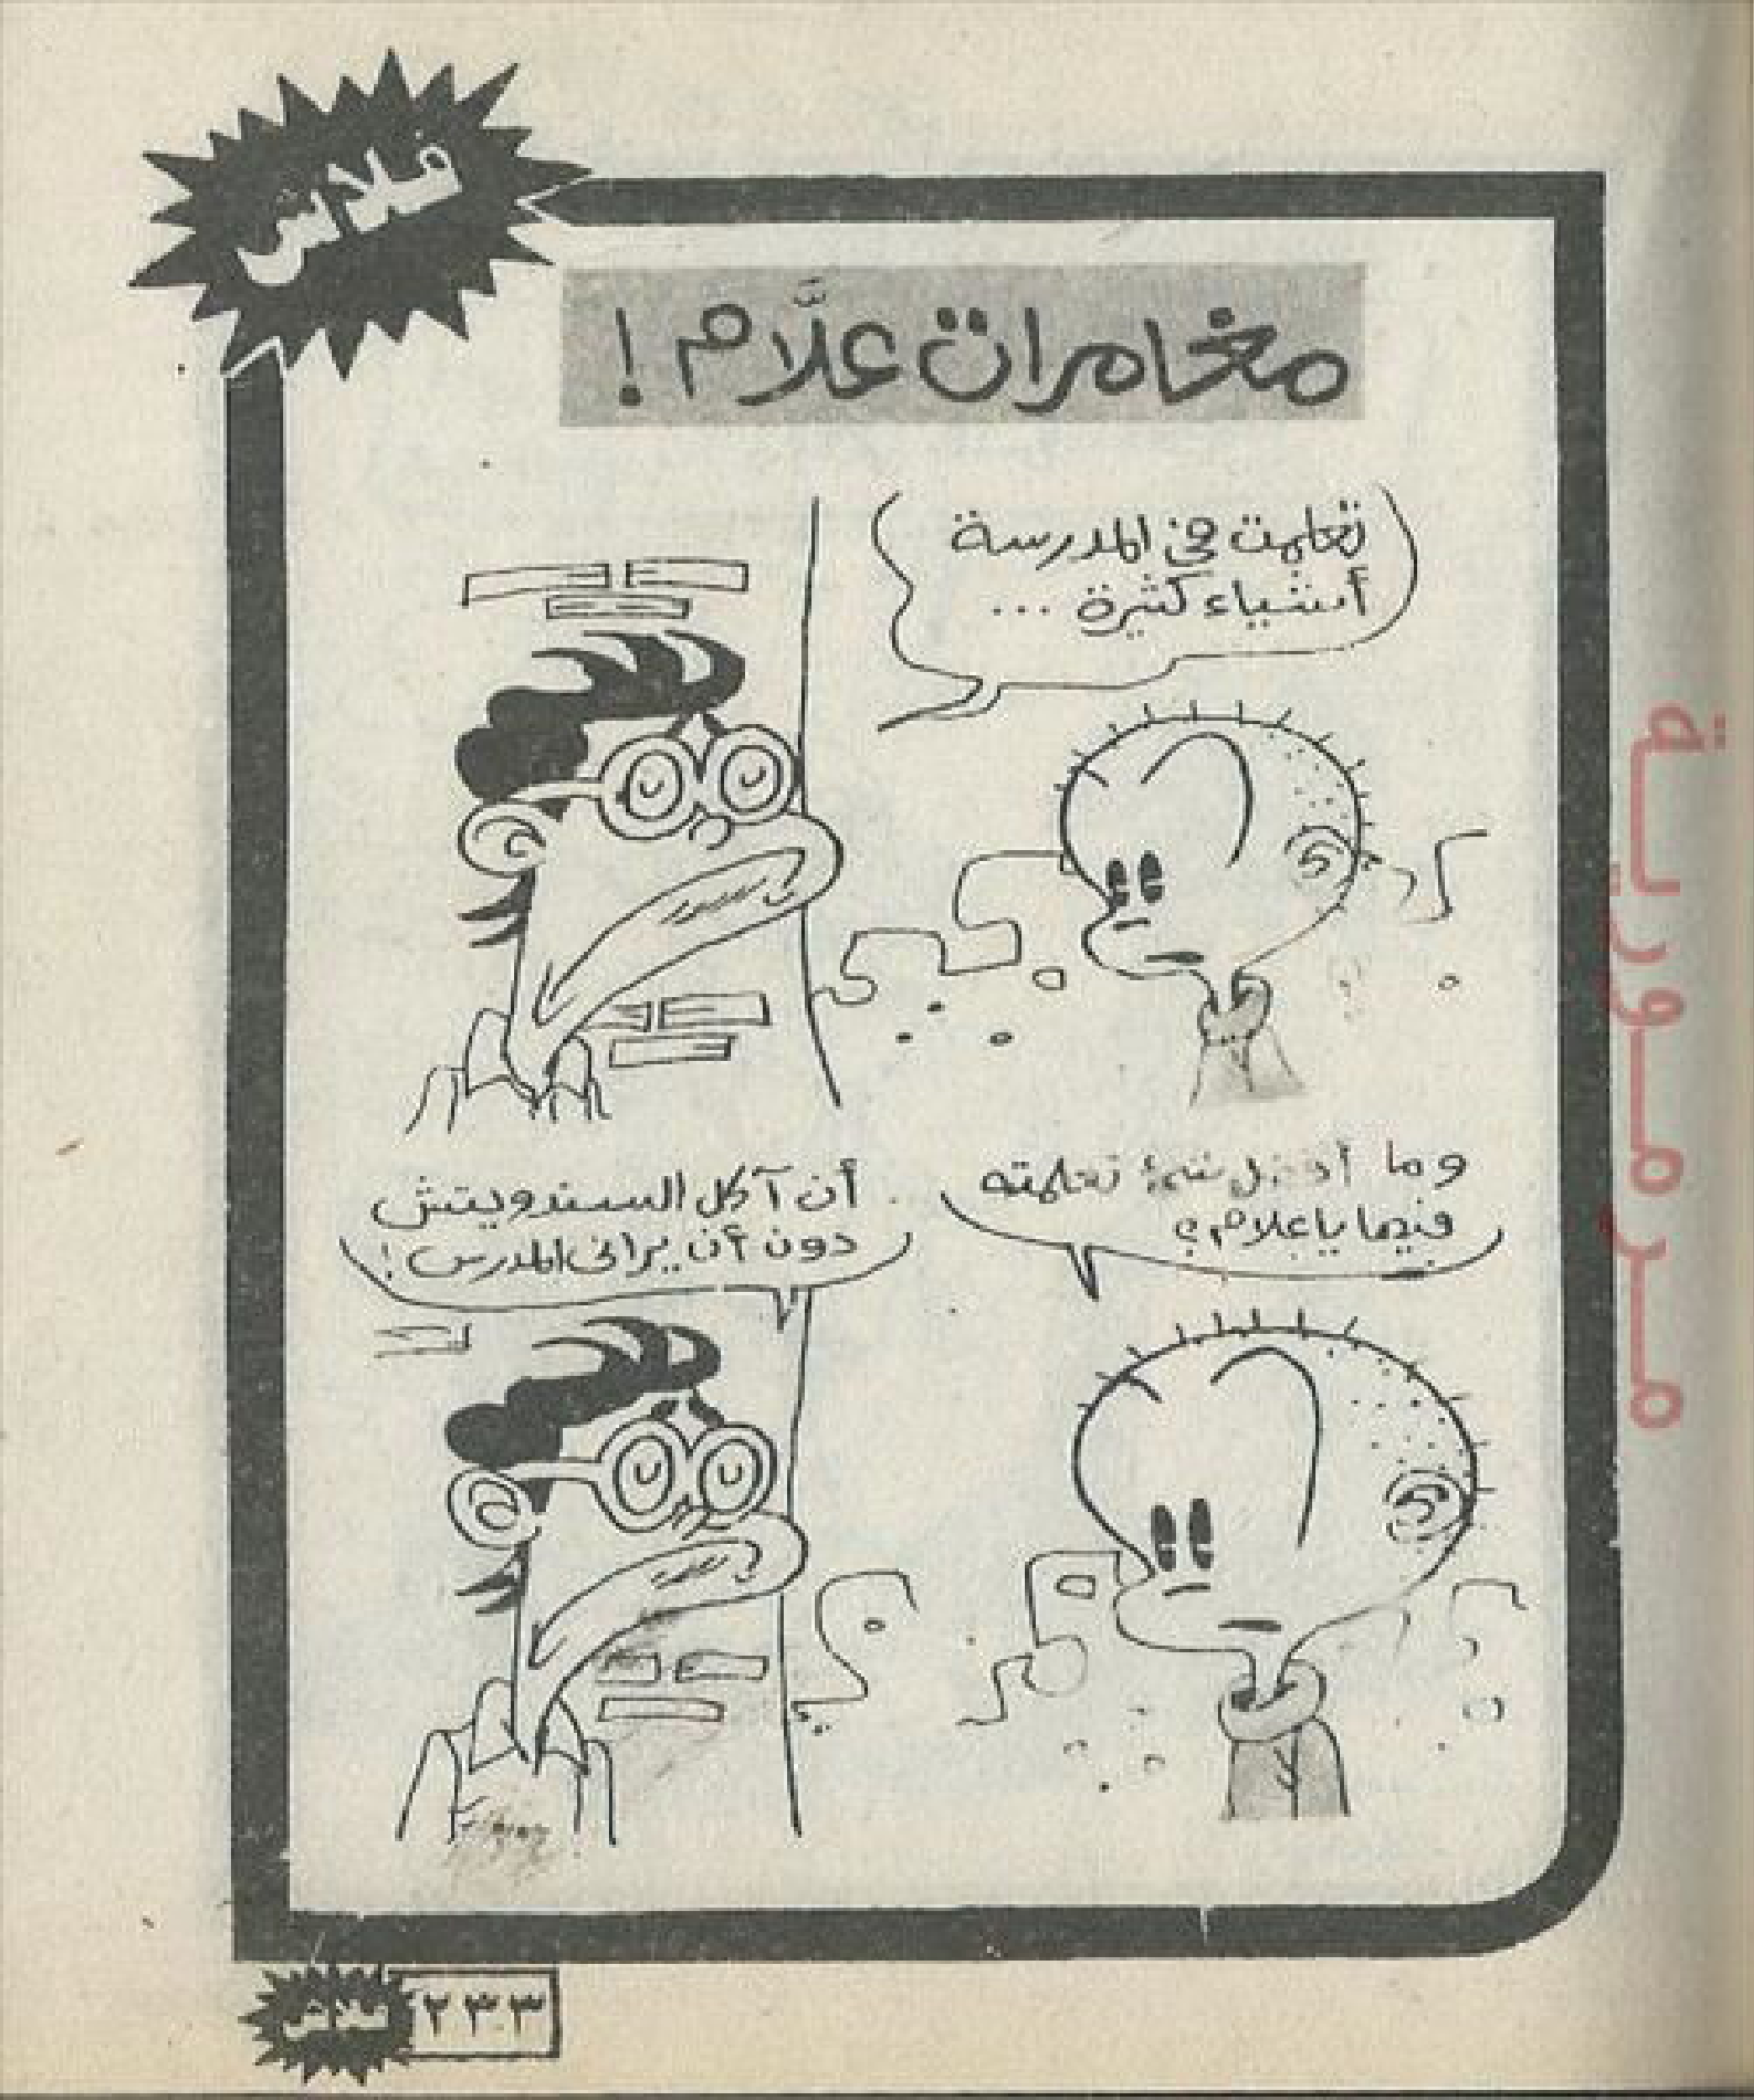 فلاش
مغامرات علَّام !
تعلمت في المدرسة
أشياء كثيرة ...
وما أفضل شئ تعلمته
فيها يا علام ؟
أن آكل السندويتش
دون أن يرانى المدرس !
مرمورية
فلاش
٢٣٣